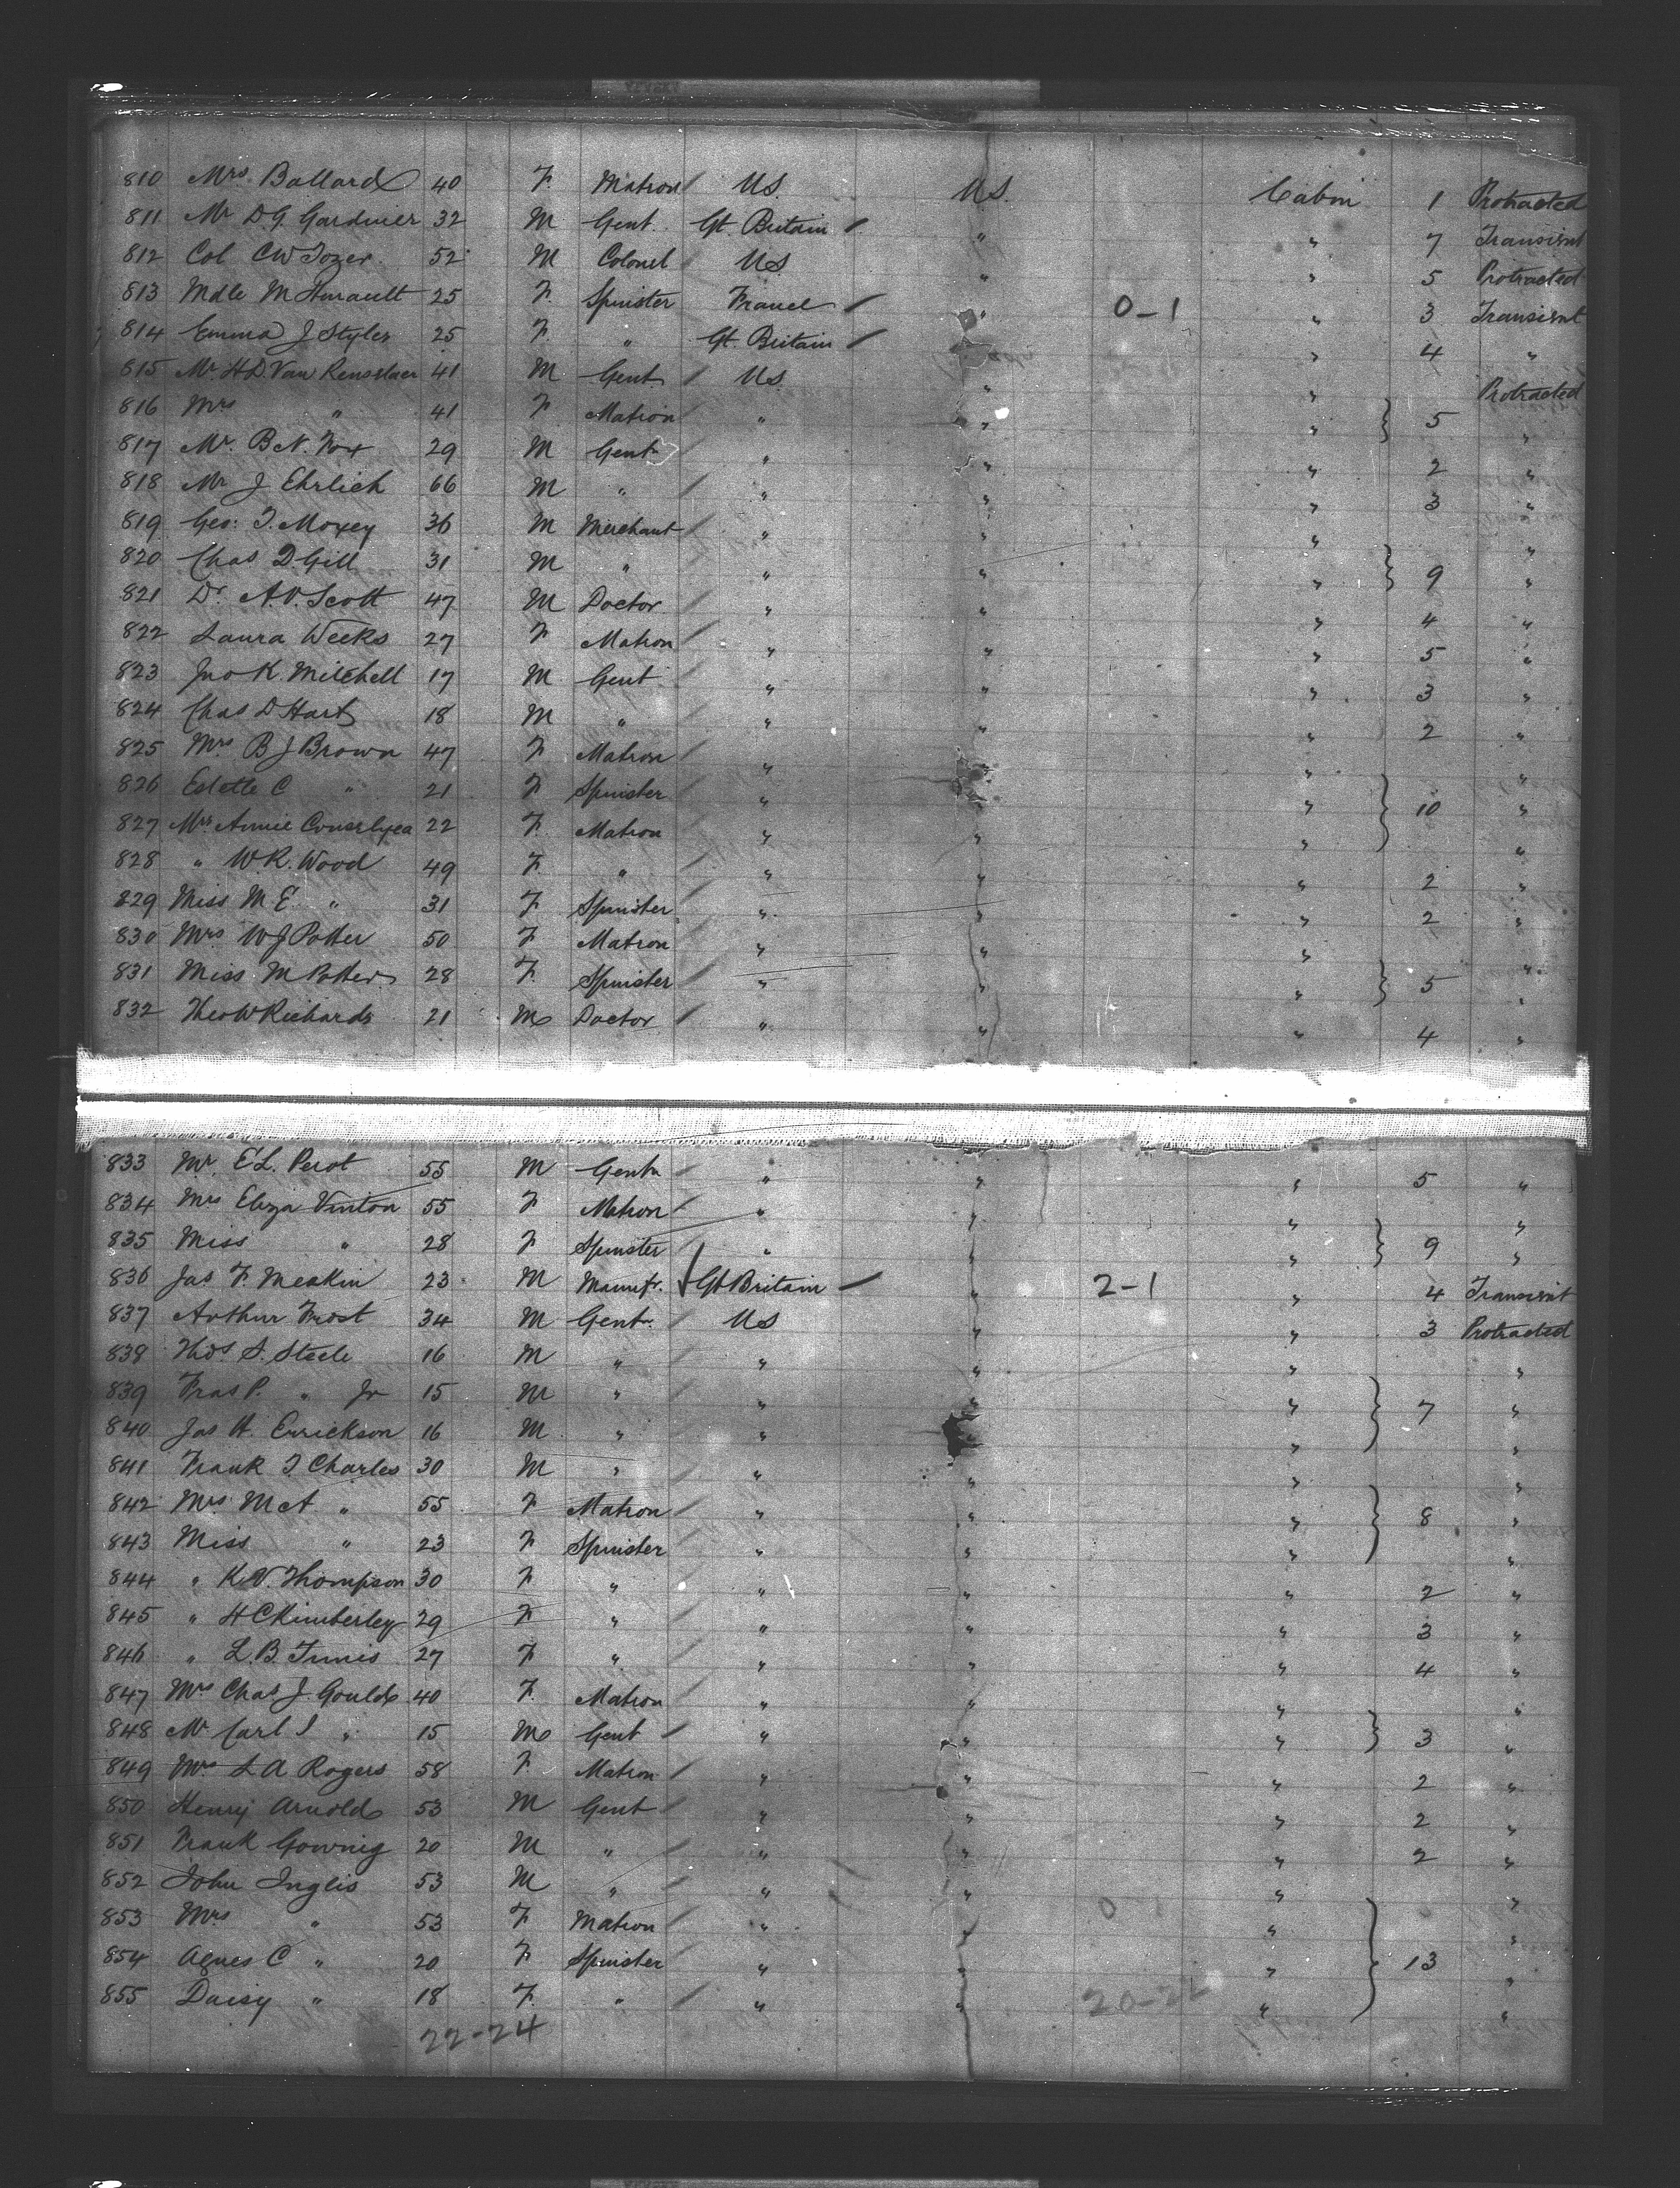 810 Mrs. Ballard 40 F. Matron US. US. Cabin 1 Protracted
811 Mr D.G. Gardinier 32 M Gent. Gt. Britain " " 7 Transient
812 Col CW Tozer 52 M Colonel US " " 5 Protracted
813 Mdle M 25 F. Spinster France " 0-1 " 3 Transient
814 Emma J Styles 25 F. " Gt. Britain " 4 "
815 Mr H.D. Van Rensslaer 41 M Gent US. " " Protracted
816 Mrs " 41 F Matron " " " } 5 "
817 Mr. B.N. Fox 29 M Gent " " " 2 "
818 Mr J Ehrlich 66 M " " " " 3 "
819 Geo: T. Moxey 36 M Merchant " " " "
820 Chas D Gill 31 M " " " " } 9 "
821 Dr. A.V. Scott 47 M Doctor " " " 4 "
822 Laura Weeks 27 F Matron " " " 5 "
823 Jno K. Mitchell 17 M Gent " " " 3 "
824 Chas D Hart 18 M " " " " 2 "
825 Mrs B J Brown 47 F Matron " " "
826 Estelle C " 21 F Spinster " " } 10 "
827 Mrs Annie Conselyea 22 F. Matron " " " "
828 " W.R. Wood 49 F. " " " " 2 "
829 Miss M E " 31 F. Spinster " " " 2 "
830 Mrs W J Potter 50 F Matron " " " "
831 Miss M Potter 28 F. Spinster " " " } 5 "
832 Theo W Richards 21 M Doctor " " " 4 "
833 Mr. E.L. Perot 55 M Gent " " " 5 "
834 Mrs Eliza Vinton 55 F Matron " " " "
835 Miss " 28 F Spinster " " " } 9 "
836 Jas. F. Meakin 23 M Manufr. Gt Britain " 2-1 " 4 Transient
837 Arthur Frost 34 M Gent. US " " 3 Protracted
838 Thos. S. Steele 16 M " " " " "
839 Fras P. " Jr 15 M " " " " } 7 "
840 Jas H. Errickson 16 M " " " "
841 Frank T Charles 30 M " " " " "
842 Mrs McA " 55 F Matron " " " } 8 "
843 Miss " 23 F Spinster " " " "
844 " K.V. Thompson 30 F " " " " 2 "
845 " H C Kimberley 29 F " " " 3 "
846 " L.B. Tunis 27 F " " " " 4 "
847 Mrs Chas J. Gould 40 F. Matron " " " "
848 Mr Carl I " 15 M Gent " " " } 3 "
849 Mrs L A Rogers 58 F Matron " " " 2 "
850 Henry Arnold 53 M Gent " " " 2 "
851 Frank Gowing 20 M " " " " 2 "
852 John Inglis 53 M " " " " "
853 Mrs " 53 F Matron " " 0 " "
854 Agnes C " 20 F Spinster " " " } 13 "
855 Daisy " 18 F. " " " 20-22 " "
22-24